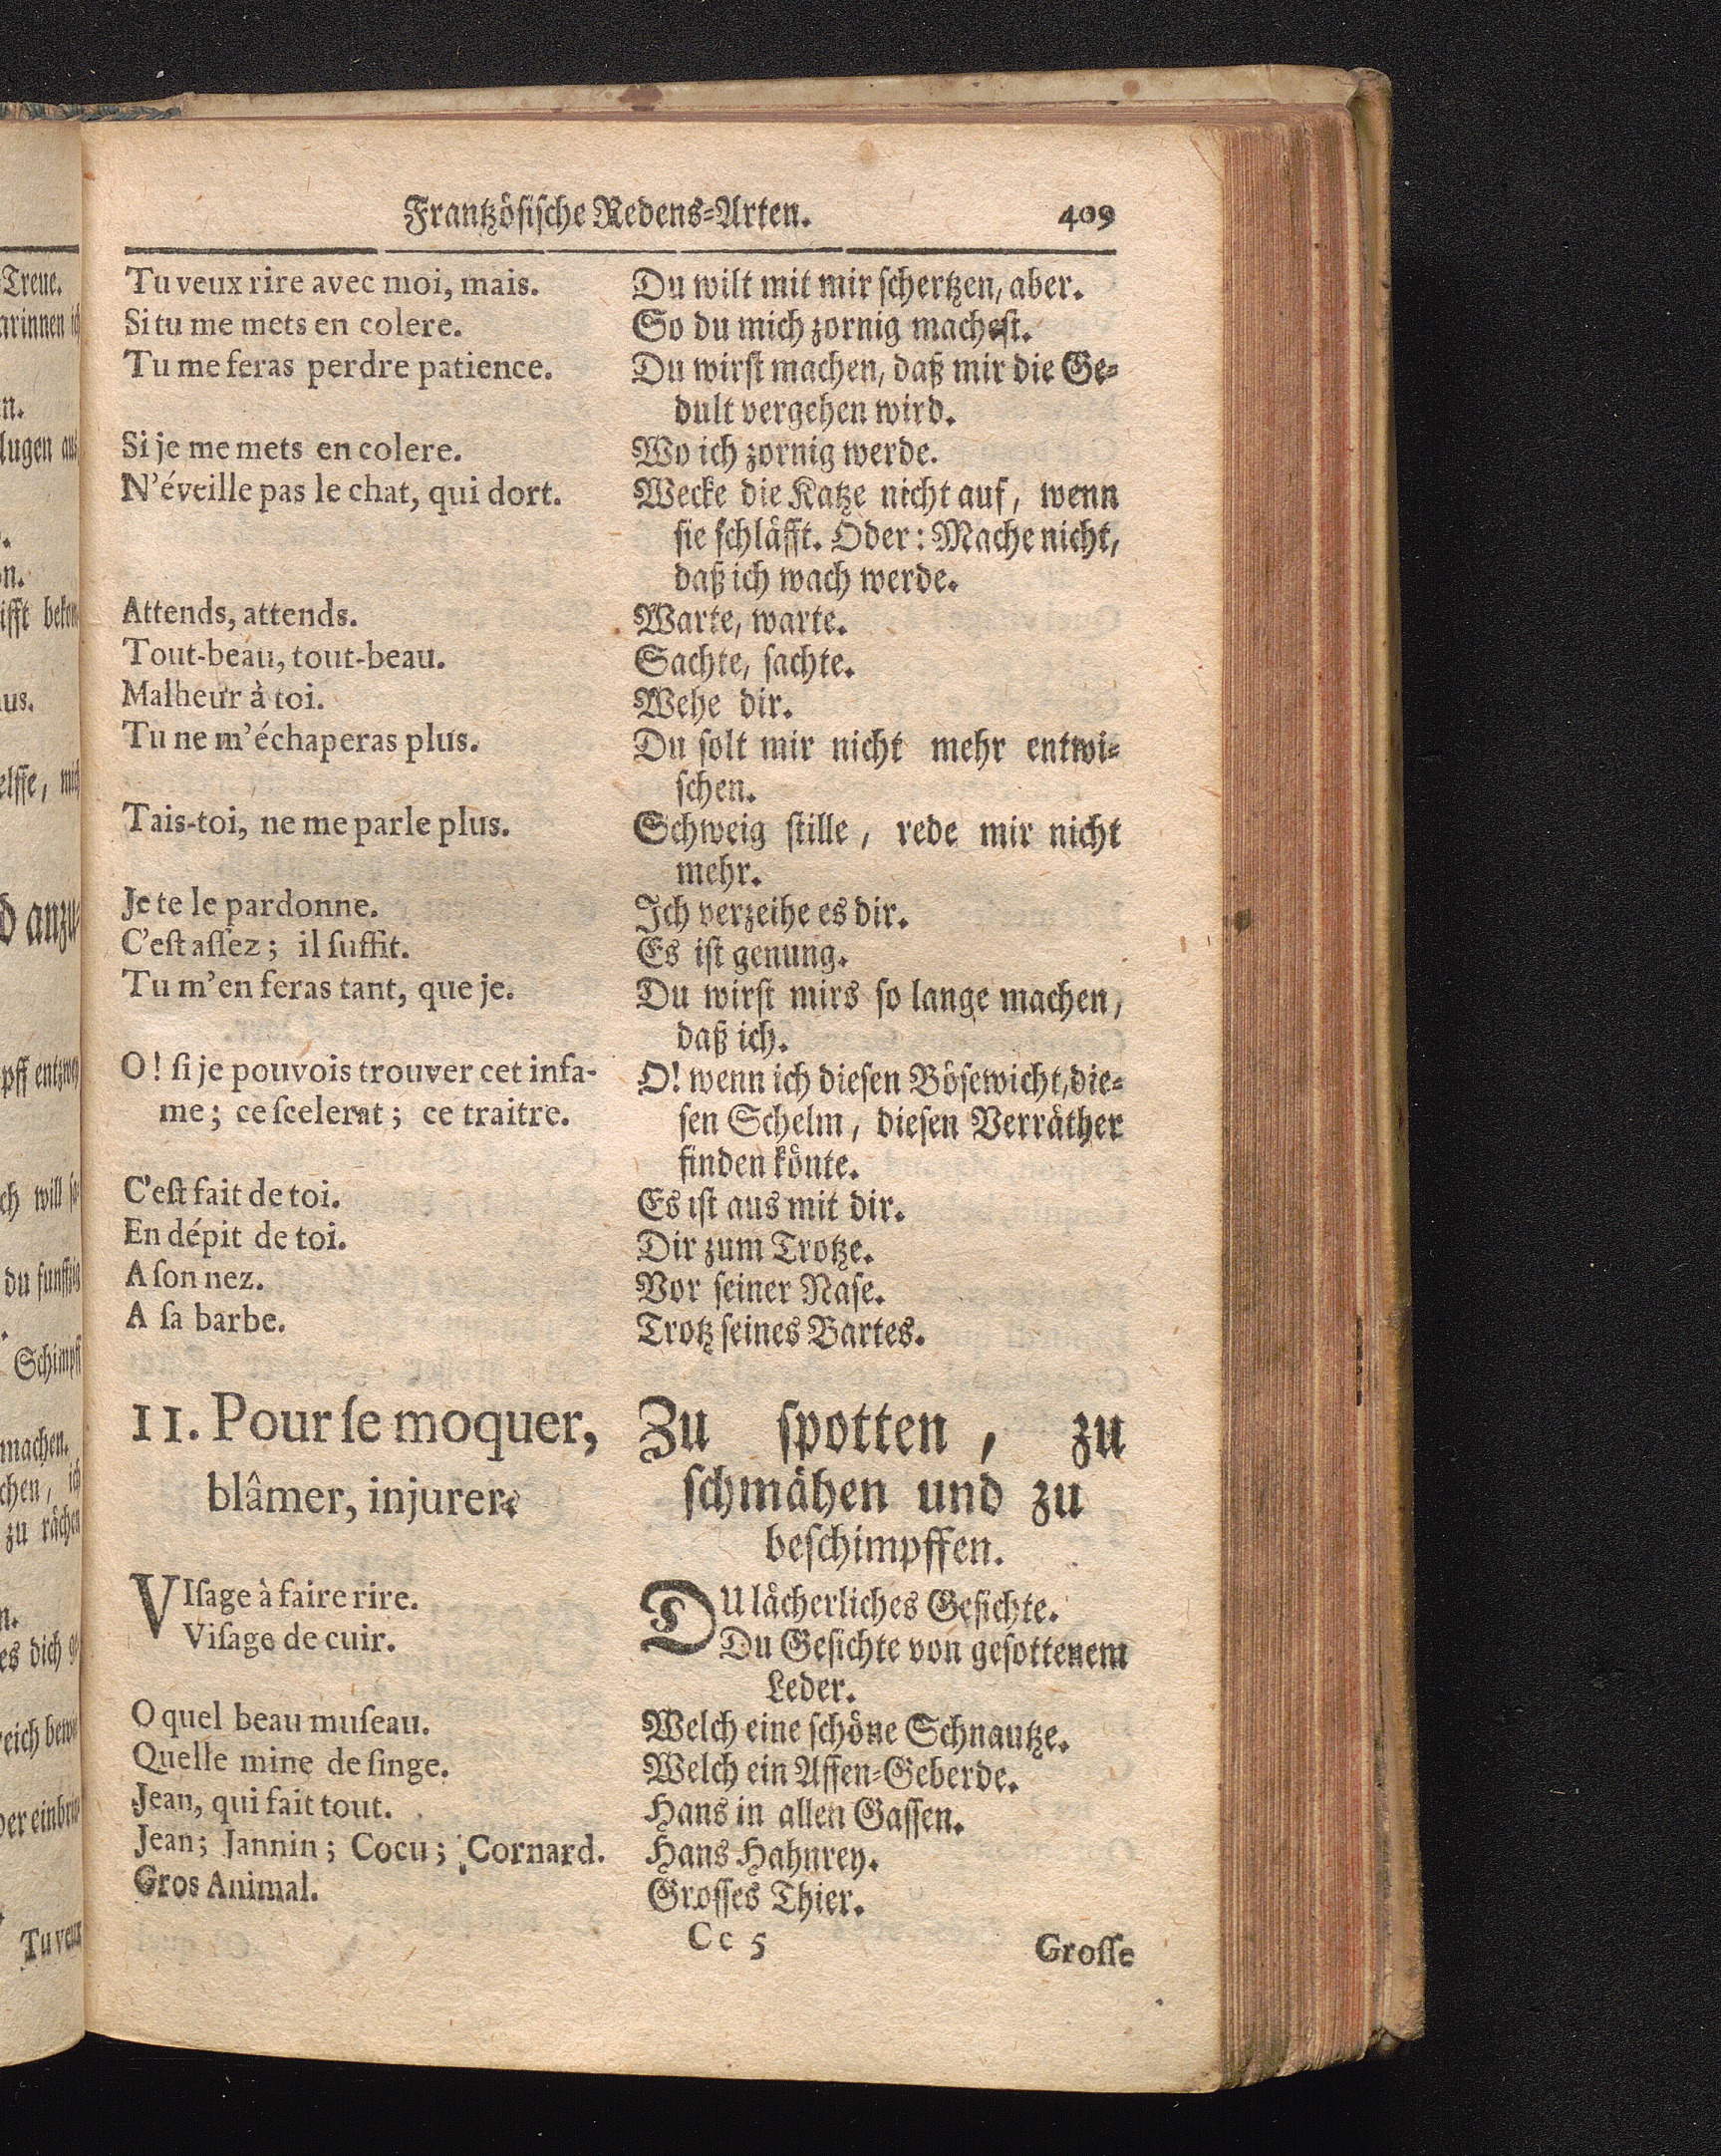 Frantzösische Redens-Arten. 409
Tu veux rire avec moi, mais.
Si tu me mets en colere.
Tu me feras perdre patience.
Si je me mets en colere.
N'éveille pas le chat, qui dort.
Attends, attends.
Tout-beau, tout-beau.
Malheur à toi.
Tu ne m'échaperas plus.
Tais-toi, ne me parle plus.
Je te le pardonne.
C'eſt aſſez; il ſuffit.
Tu m'en feras tant, que je.
O! ſi je pouvois trouver cet infa-
me; ce ſcelerat; ce traitre.
C'eſt fait de toi.
En dépit de toi.
A ſon nez.
A ſa barbe.
Du wilt mit mir ſchertzen, aber.
So du mich zornig macheſt.
Du wirſt machen, daß mir die Ge-
dult vergehen wird.
Wo ich zornig werde.
Wecke die Katze nicht auf, wenn
ſie ſchläfft. Oder: Mache nicht,
daß ich wach werde.
Warte, warte.
Sachte, ſachte.
Wehe dir.
Du ſolt mir nicht mehr entwi-
ſchen.
Schweig ſtille, rede mir nicht
mehr.
Ich verzeihe es dir.
Es iſt genung.
Du wirſt mirs ſo lange machen,
daß ich.
O! wenn ich dieſen Böſewicht, die-
ſen Schelm, dieſen Verräther
finden könte.
Es iſt aus mit dir.
Dir zum Trotze.
Vor ſeiner Naſe.
Trotz ſeines Bartes.
11. Pour ſe moquer,
blâmer, injurer.
VIſage à faire rire.
Viſage de cuir.
O quel beau muſeau.
Quelle mine de ſinge.
Jean, qui fait tout.
Jean; Jannin; Cocu; Cornard.
Gros Animal.
Zu ſpotten, zu
ſchmähen und zu
beſchimpffen.
DU lächerliches Geſichte.
Du Geſichte von geſottenem
Leder.
Welch eine ſchöne Schnautze.
Welch ein Affen-Geberde.
Hans in allen Gaſſen.
Hans Hahnrey.
Groſſes Thier.
Cc 5 Groſſe